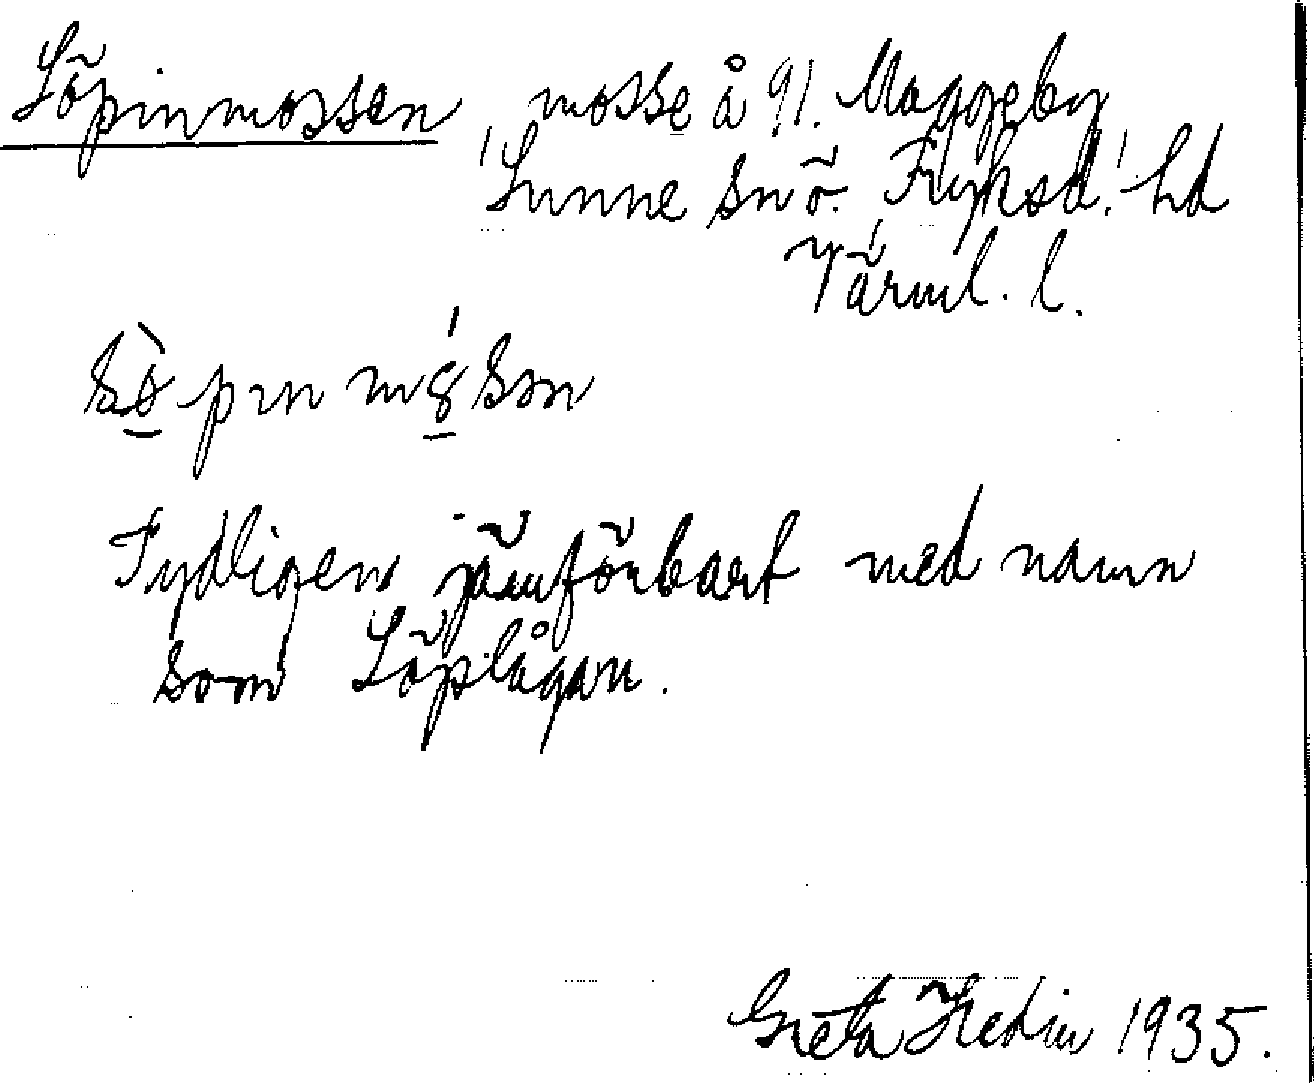 Söpinmossen, mosse å 91. Maggeby
Sunne sn ö. Fryksd. hd
Värml. l.
sø̠̀pɪn m8̠́sən
Tydligen jämförbart med namn
som Söplågan.
Greta Hedin 1935.